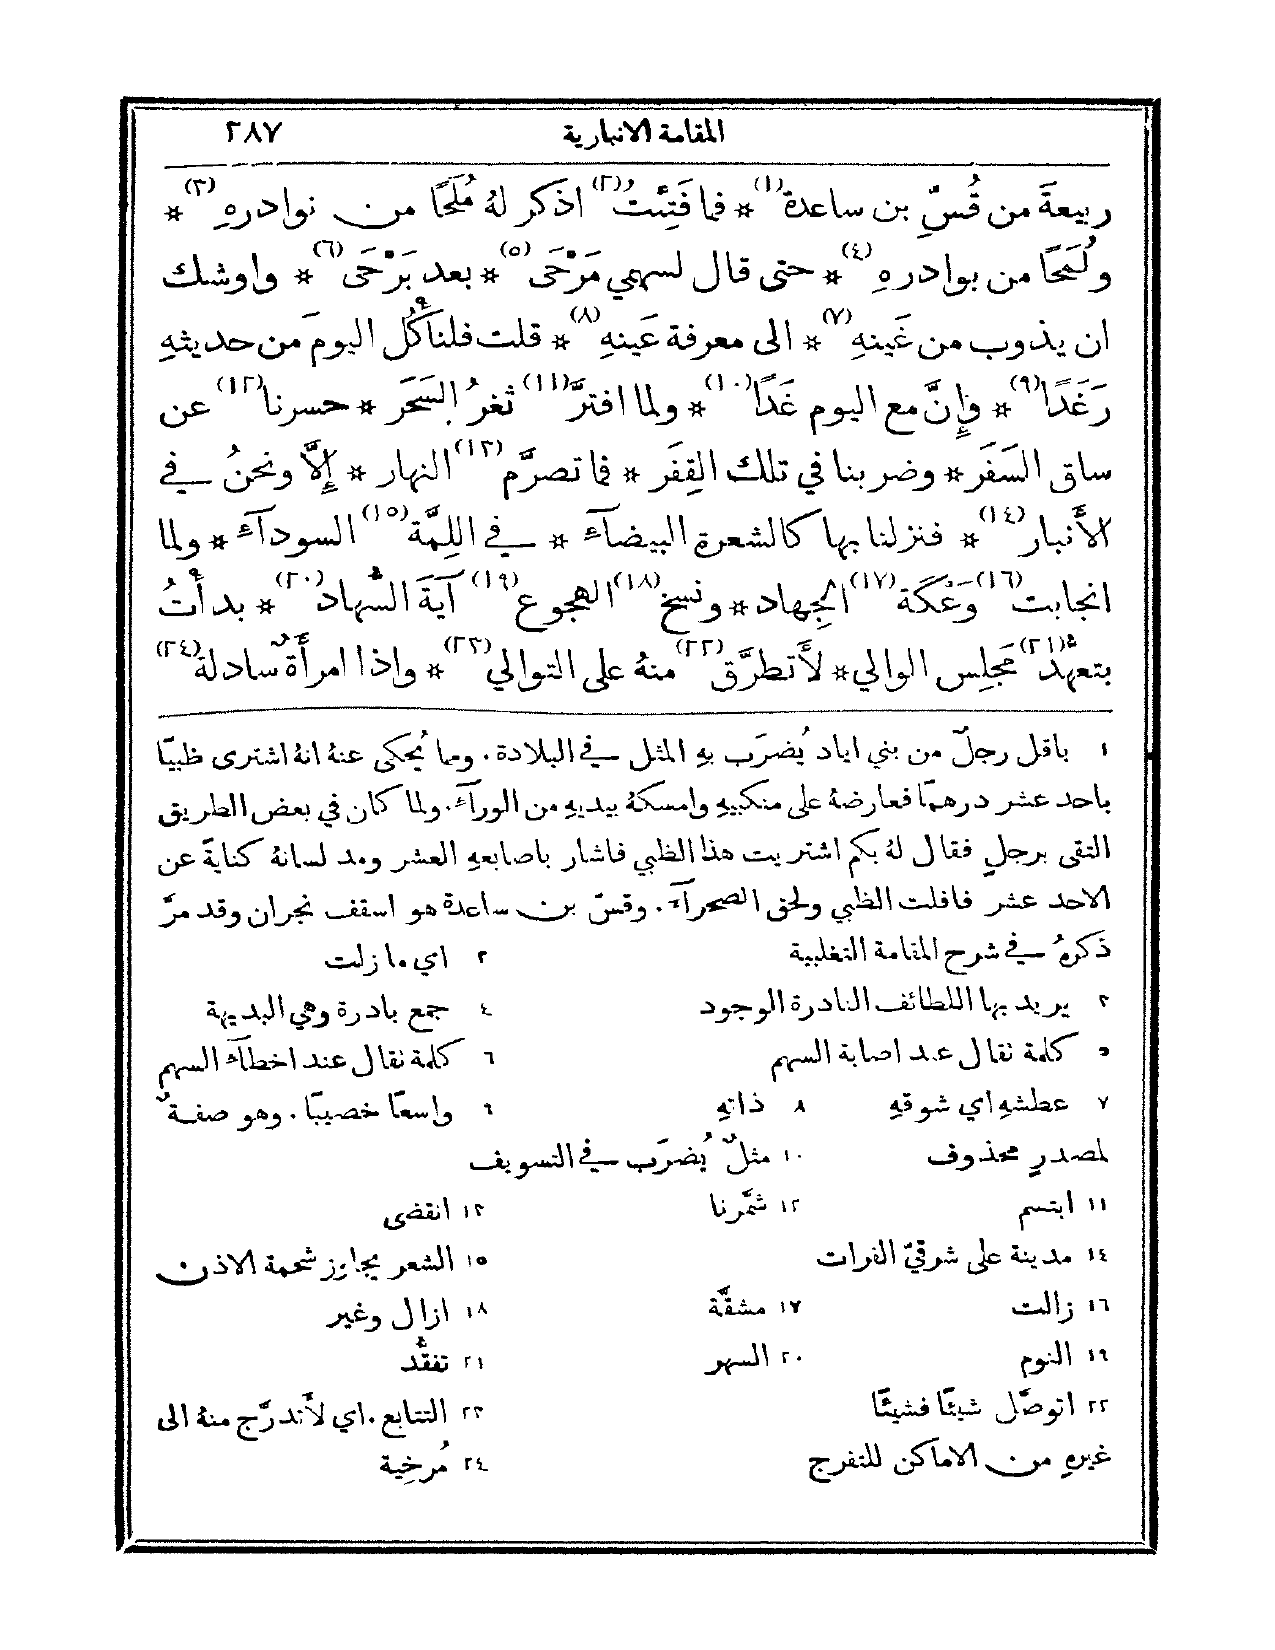 المقامة الانبارية ٢٨٧
ربيعةَ من قُسِّ بن ساعدة(١) * فما فَتِئْتُ(٢) اذكر لهُ مُلَحًا من نوادرهِ(٣) *
ولُمَحًا من بوادرهِ(٤) * حتى قال لسهمي مَرْحَى(٥) * بعد بَرْحَى(٦) * واوشك
ان يذوب من غَينهِ(٧) * الى معرفة عَينهِ(٨) * قلت فلنأكُل اليومَ من حديثهِ
رَغَدًا(٩) * وإِنَّ مع اليوم غَدًا(١٠) * ولما افترَّ(١١) ثغرُ السَحَر * حسرنا(١٢) عن
ساق السَفَر * وضربنا في تلك القِفَر * فما تصرَّم(١٣) النهار * إِلَّا ونحنُ في
الأَنبار(١٤) * فنزلنا بها كالشعرة البيضآءَ * في اللِمَّة(١٥) السودآءَ * ولما
انجابت(١٦) وَعْكَة(١٧) الجِهاد * ونسخ(١٨) الهجوع(١٩) آيَةَ السُهاد(٢٠) * بدأْتُ
بتعهُّد(٢١) مَجلِس الوالي * لأَتطرَّق(٢٢) منهُ على التوالي(٢٣) * واذا امرأَةٌ سادلة(٢٤)
١ باقل رجلٌ من بني اياد يُضرَب بهِ المثل في البلادة. ومما يُحكى عنهُ انهُ اشترى ظبيًا
باحد عشر درهمًا فعارضهُ على منكبيهِ وامسكهُ بيديهِ من الورآءَ. ولما كان في بعض الطريق
التقى برجلٍ فقال لهُ بكم اشتريت هذا الظبي فاشار باصابعهِ العشر ومد لسانهُ كنايةً عن
الاحد عشر فافلت الظبي ولحق الصحرآءَ. وقسّ بن ساعدة هو اسقف نجران وقد مرَّ
ذكرهُ في شرح المقامة التغلبية ٢ اي ما زلت
٣ يريد بها اللطائف النادرة الوجود ٤ جمع بادرة وهي البديهة
٥ كلمة تقال عند اصابة السهم ٦ كلمة تقال عند اخطآءَ السهم
٧ عطشهِ اي شوقهِ ٨ ذاتهِ ٩ واسعًا خصيبًا. وهو صفةٌ
لمصدرٍ محذوف ١٠ مثلٌ يُضرَب في التسويف
١١ ابتسم ١٢ شمَّرنا ١٣ انقضى
١٤ مدينة على شرقيّ الفرات ١٥ الشعر يجاوز شحمة الاذن
١٦ زالت ١٧ مشقَّة ١٨ ازال وغير
١٩ النوم ٢٠ السهر ٢١ تفقُّد
٢٢ اتوصَّل شيئًا فشيئًا ٢٣ التتابع. اي لأَتدرَّج منهُ الى
غيرهِ من الاماكن للتفرج ٢٤ مُرخِية